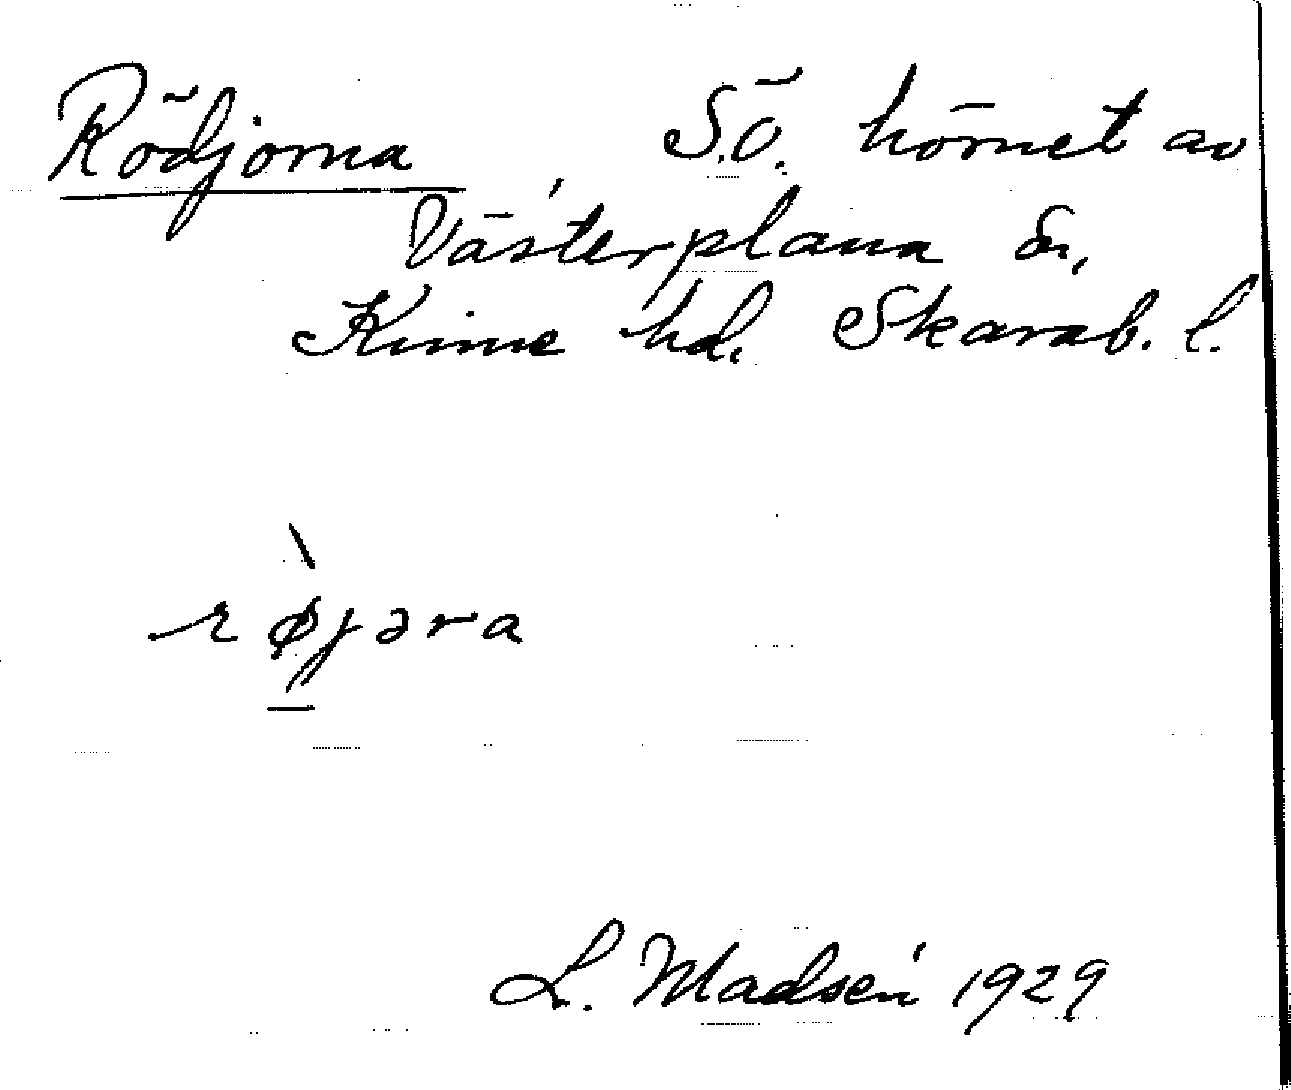 Rödjorna S.Ö. hörnet av
Västerplana sn,
Kinne hd. Skarab. l.
røjəra
L. Madsén 1929